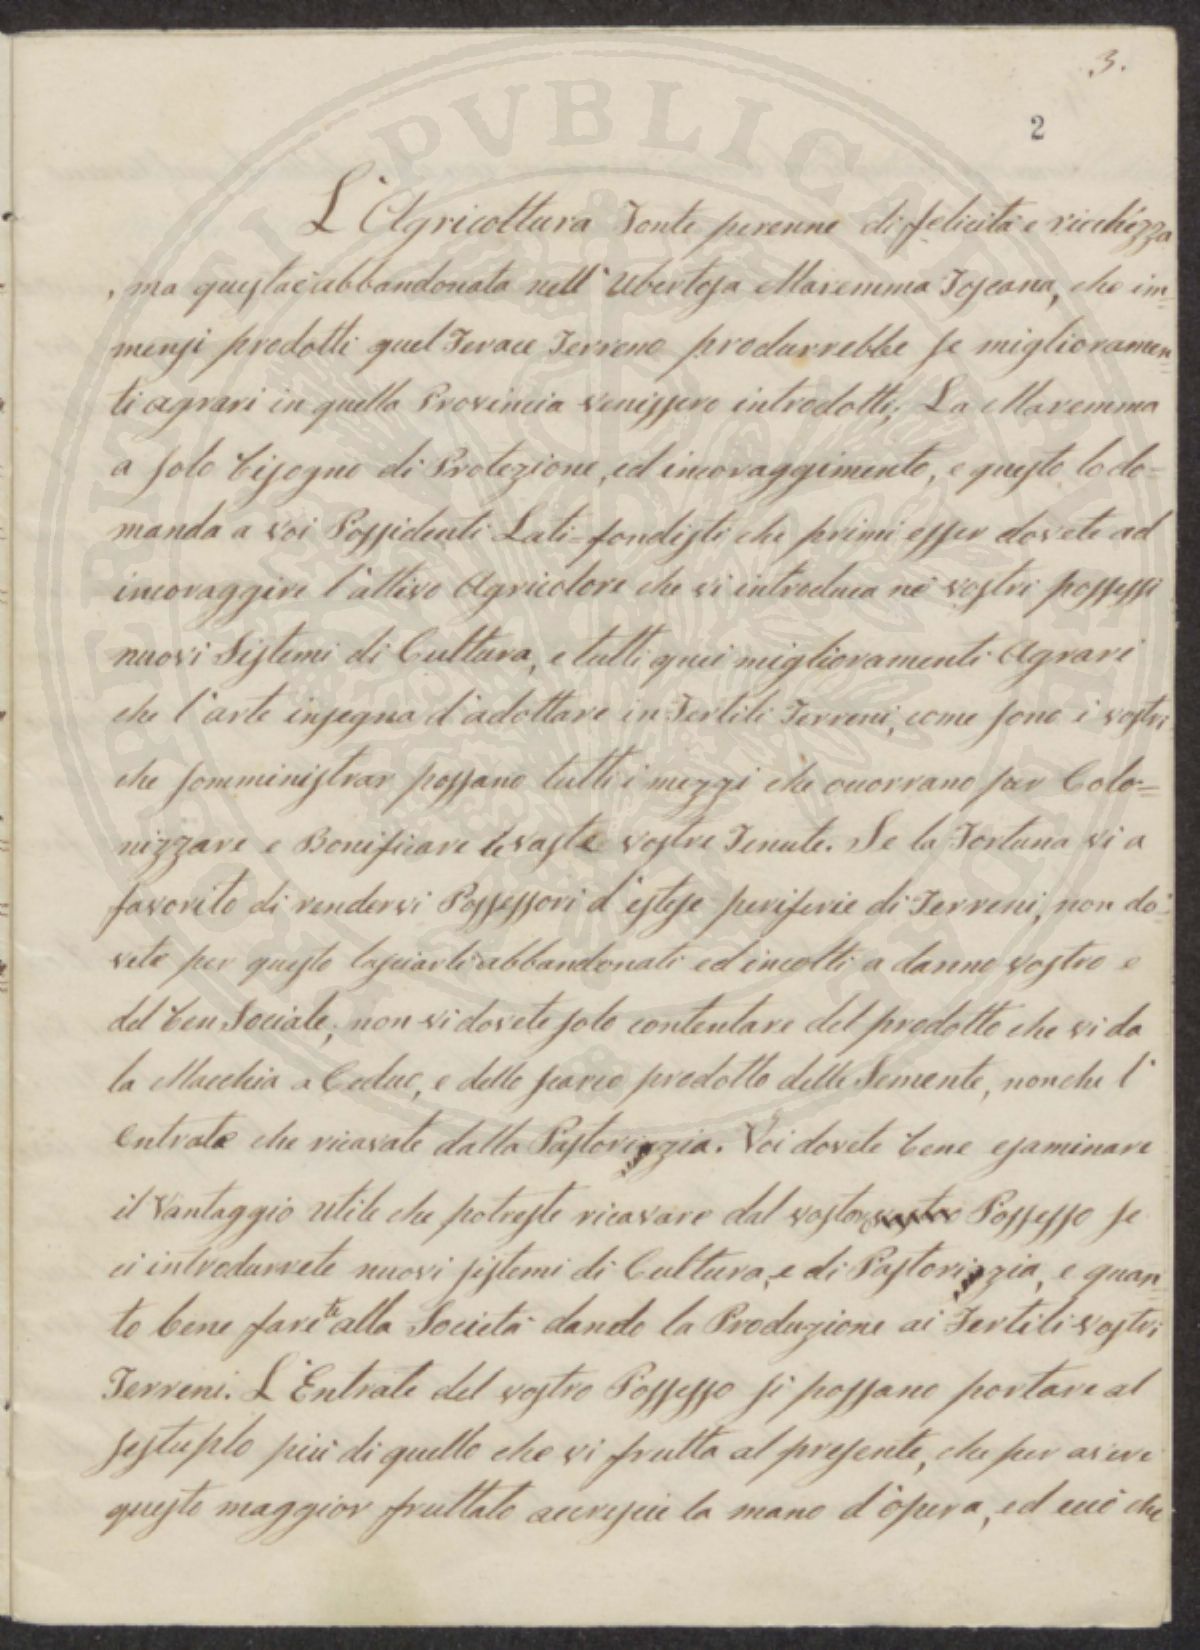 3.
2
L'Agricoltura Fonte perenne di felicità e ricchézza
, ma questa è abbandonata nell' Ubertosa Maremma Toscana, che im=
mensi prodotti quel Ferace Terreno produrrebbe se miglioramen=
ti agrari in quella Provincia venissero introdotti; La Maremma
a solo bisogno di Protezione, ed incoraggimento, e questo lo do=
manda a voi Possidenti Lati=fondisti che primi esser dovete ad
incoraggire l'attivo Agricolore che vi introduca né vostri possessi
nuovi Sistemi di Cultura, e tutti quei miglioramenti Agrari
che l'arte insegna d'adottare in Fertili Terreni, come sono i vostri
che somministrar possano tutti i mezzi che ocorrano per Colo=
nizzare e Bonificare le vaste vostre Tenute. Se la Fortuna vi a
favorito di rendervi Possessori d'estese periferie di Terreni, non do=
vete per questo lasciarli abbandonati ed incolti a danno vostro e
del ben Sociale; non vi dovete solo contentare del prodotto che vi da
la Macchia a Ceduo, e dello scarso prodotto delle Semente, nonche l'
Entrate che ricavate dalla Pastorizzia. Voi dovete bene esaminare
il Vantaggio utile che potreste ricavare dal vostro vostro Possesso se
ci introdurrete nuovi sistemi di Cultura, e di Pastorizzia, e quan=
to bene farete alla Società dando la Produzione ai Fertili vostri
Terreni. L'Entrate del vostro Possesso si possano portare al
sestuplo più di quello che vi frutta al presente, che per avere
questo maggior fruttato accrescie la mano d'òpera, ed ecco che